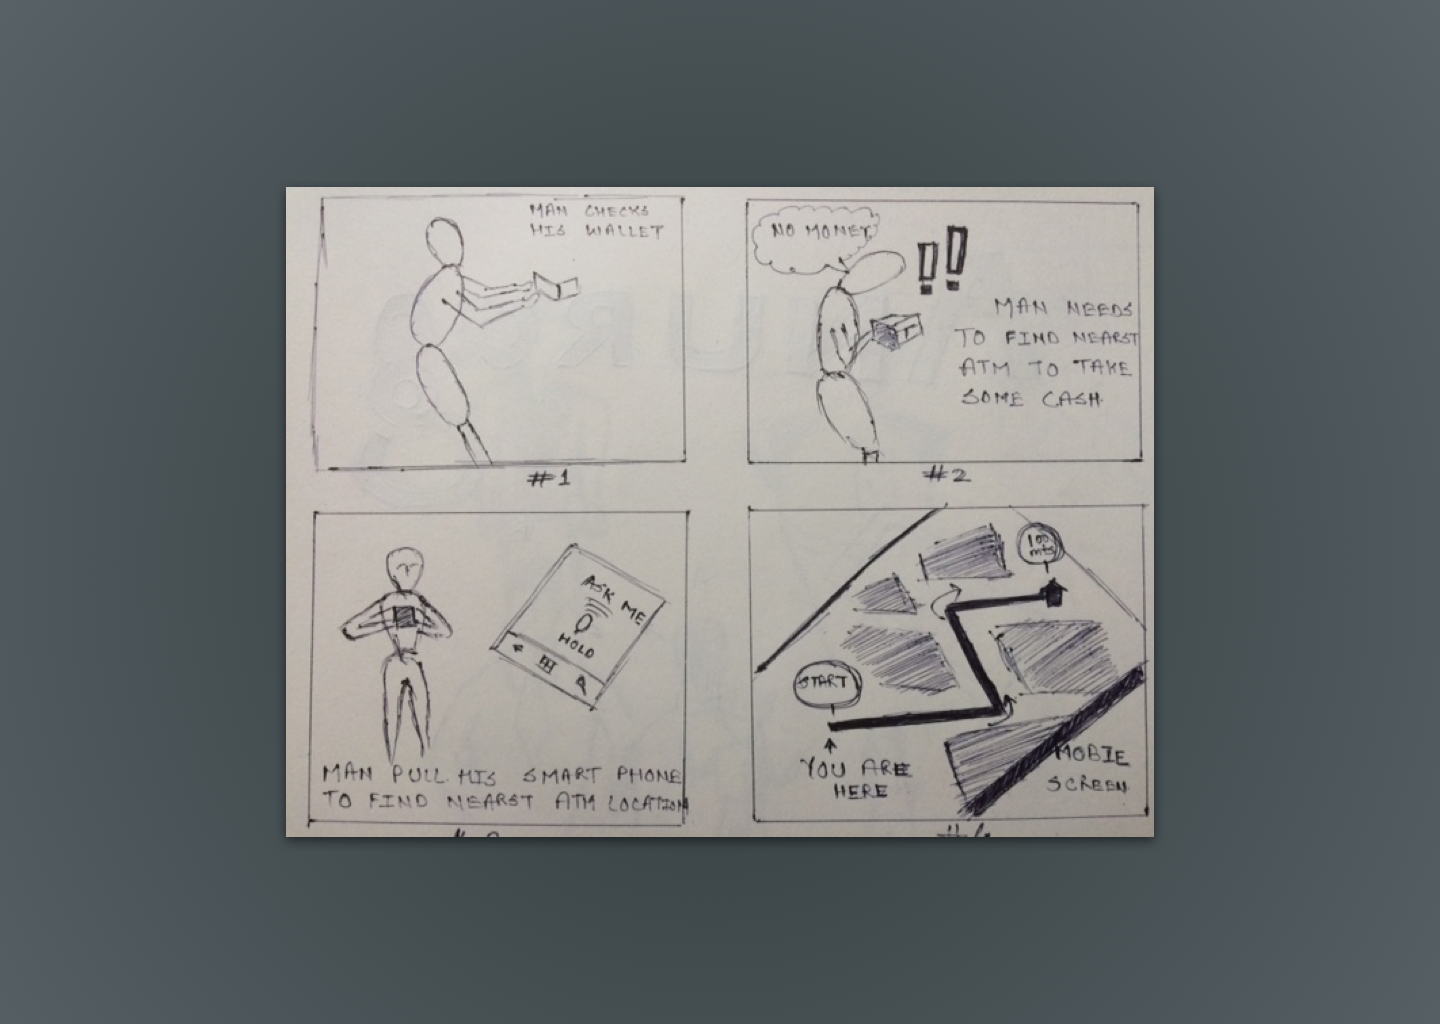 MAN CHECKS
HIS WALLET
#1
NO MONEY
!!
MAN NEEDS
TO FIND NEARST
ATM TO TAKE
SOME CASH.
#2
ASK ME
HOLD
MAN PULL HIS SMART PHONE
TO FIND NEARST ATM LOCATION
100
mts
START
YOU ARE
HERE
MOBIE
SCREEN